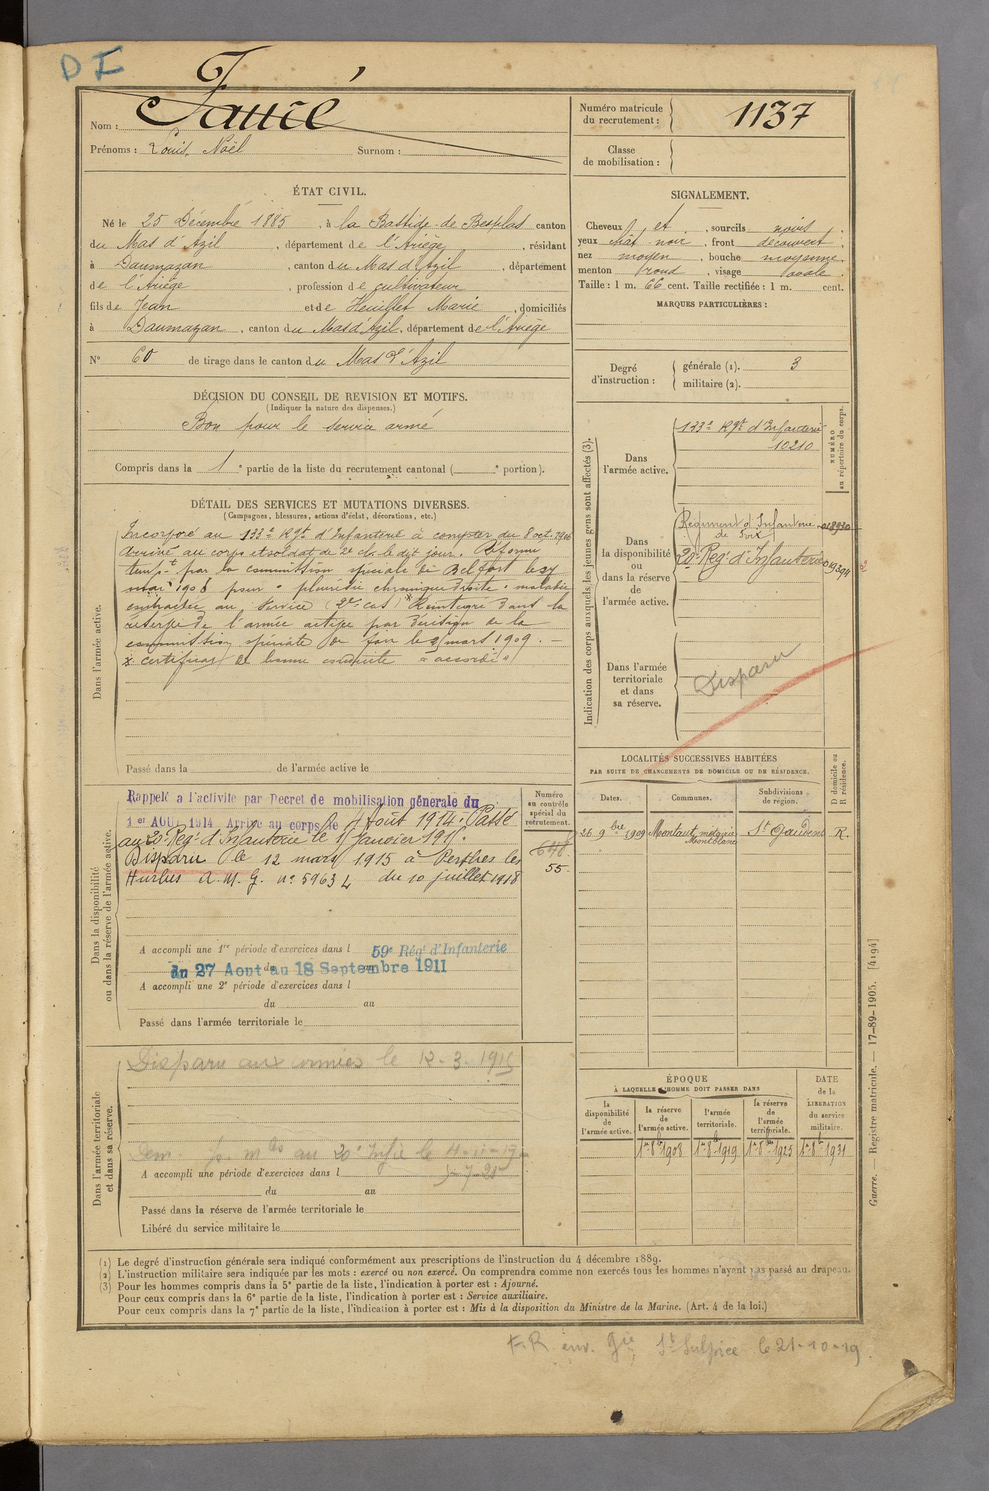 D I
Nom : Fauré
Prénoms : Louis, Noël Surnom :
Numéro matricule du recrutement : 1137
Classe de mobilisation :
ÉTAT CIVIL.
Né le 25 Décembre 1885, à la Bastide-de-Besplas canton
du Mas d'Azil, département de l'Ariège, résidant
à Daumazan, canton du Mas d'Azil, département
de l'Ariège, profession de cultivateur
fils de Jean et de Heuillet Marie, domiciliés
à Daumazan, canton du Mas d'Azil, département de l'Ariège
N° 60 de tirage dans le canton du Mas d'Azil
SIGNALEMENT.
Cheveux et sourcils noirs
yeux chât noir, front découvert
nez moyen, bouche moyenne
menton rond, visage ovale
Taille : 1 m. 66 cent. Taille rectifiée : 1 m. cent.
MARQUES PARTICULIÈRES :
Degré d'instruction : générale (1). 3
militaire (2).
DÉCISION DU CONSEIL DE REVISION ET MOTIFS.
(Indiquer la nature des dispenses.)
Bon pour le service armé
Compris dans la 1e partie de la liste du recrutement cantonal ( e portion).
DÉTAIL DES SERVICES ET MUTATIONS DIVERSES.
(Campagnes, blessures, actions d'éclat, décorations, etc.)
Dans l'armée active.
Incorporé au 133e Rgt d'Infanterie à compter du 8 oct. 1906
Arrivé au corps et soldat de 2e cl. le dit jour. Réformé
tempt par la commission spéciale de Belfort le 27
mars 1908 pour "pleurésie chronique droite" maladie
contractée au service (2e cas) * Réintégré dans la
réserve de l'armée active par décision de la
commission spéciale de Foix le 2 mars 1909. —
* certificat de bonne conduite "accordé"
Passé dans la de l'armée active le
Indication des corps auxquels les jeunes gens sont affectés (3).
NUMÉRO au répertoire du corps.
Dans l'armée active.
133e Rgt d'Infanterie
10210
Dans la disponibilité ou dans la réserve de l'armée active.
Régiment d'Infanterie
de Foix
20e Reg. d'Infanterie
Dans l'armée territoriale et dans sa réserve.
Disparu
Dans la disponibilité ou dans la réserve de l'armée active.
Numéro au contrôle spécial du recrutement.
Rappelé à l'activité par Décret de mobilisation générale du
1er AOUT 1914. Arrivé au corps le 4 Août 1914. Passé
au 20e Reg. d'Infanterie le 1 Janvier 1915.
Disparu le 12 mars 1915 à Perthes les
Hurlus A.M.G. n° 59634 du 10 juillet 1918
55
A accompli une 1re période d'exercices dans l 59e Régt d'Infanterie
du 27 Aout au 18 Septembre 1911
A accompli une 2e période d'exercices dans l
du au
Passé dans l'armée territoriale le
LOCALITÉS SUCCESSIVES HABITÉES
PAR SUITE DE CHANGEMENTS DE DOMICILE OU DE RÉSIDENCE.
Dates. Communes. Subdivisions de région. D domicile ou R résidence.
26 9bre 1909 Montaut, métairie Montblanc St Gaudens R.
Dans l'armée territoriale et dans sa réserve.
Disparu aux armées le 12-3-1915
au 20e Infie le
A accompli une période d'exercices dans l
du au
Passé dans la réserve de l'armée territoriale le
Libéré du service militaire le
ÉPOQUE
À LAQUELLE L'HOMME DOIT PASSER DANS
DATE de la LIBÉRATION du service militaire.
la disponibilité de l'armée active.
la réserve de l'armée active.
l'armée territoriale.
la réserve de l'armée territoriale.
1er 8bre 1908 1er 8bre 1919 1er 8bre 1925 1er 8bre 1931
Guerre. — Registre matricule. — 17-89-1905. [4194]
(1) Le degré d'instruction générale sera indiqué conformément aux prescriptions de l'instruction du 4 décembre 1889.
(2) L'instruction militaire sera indiquée par les mots : exercé ou non exercé. On comprendra comme non exercés tous les hommes n'ayant pas passé au drapeau.
(3) Pour les hommes compris dans la 5e partie de la liste, l'indication à porter est : Ajourné.
Pour ceux compris dans la 6e partie de la liste, l'indication à porter est : Service auxiliaire.
Pour ceux compris dans la 7e partie de la liste, l'indication à porter est : Mis à la disposition du Ministre de la Marine. (Art. 4 de la loi.)
F.R. env. Gie St Sulpice le 21-10-19.